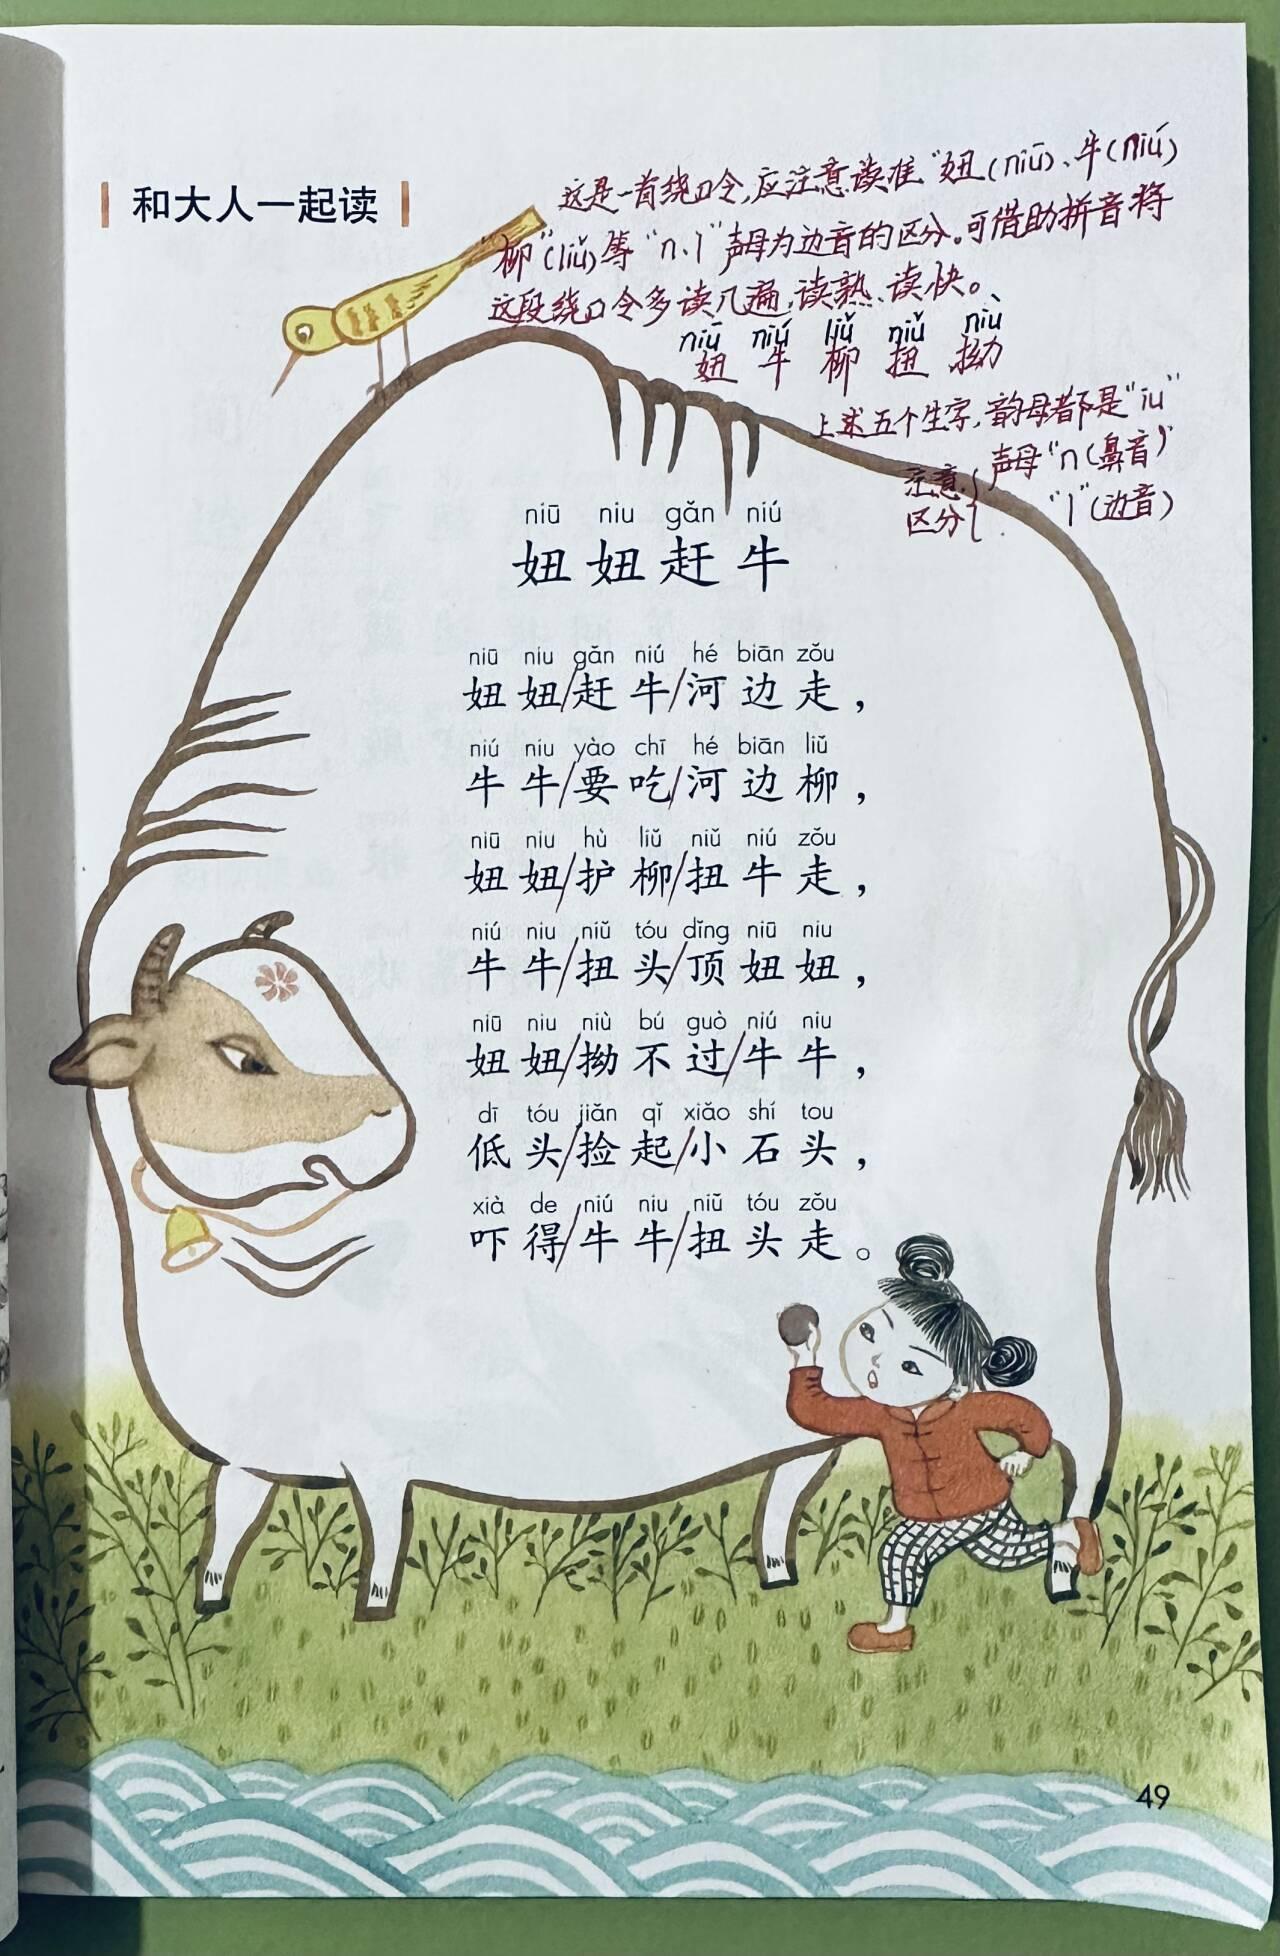 和大人一起读
这是一首绕口令,应注意读准"妞(niū)、牛(niú)
柳"(liǔ)等"n、l"声母为边音的区分。可借助拼音将
这段绕口令多读几遍,读熟、读快。
niū niú liǔ niǔ niù
妞 牛 柳 扭 拗
上述五个生字,韵母都是"iu"
注意区分{声母"n(鼻音)"
"l"(边音)
niū niu gǎn niú
妞妞赶牛
niū niu gǎn niú hé biān zǒu
妞妞/赶牛/河边走,
niú niu yào chī hé biān liǔ
牛牛/要吃/河边柳,
niū niu hù liǔ niǔ niú zǒu
妞妞/护柳/扭牛走,
niú niu niǔ tóu dǐng niū niu
牛牛/扭头/顶妞妞,
niū niu niù bú guò niú niu
妞妞/拗不过/牛牛,
dī tóu jiǎn qǐ xiǎo shí tou
低头/捡起/小石头,
xià de niú niu niǔ tóu zǒu
吓得/牛牛/扭头走。
49